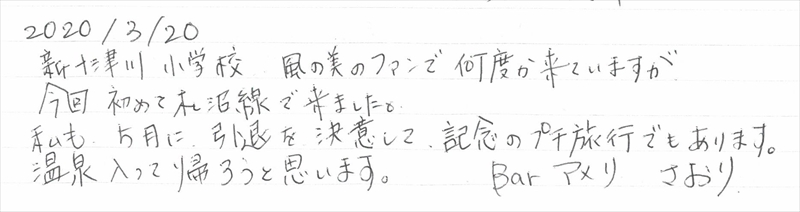 2020/3/20
新十津川 小学校 風の美のファンで何度か来ていますが
今回 初めて札沼線で来ました。
私も、5月に、引退を決意して、記念のプチ旅行でもあります。
温泉入って帰ろうと思います。 Bar アメリ さおり